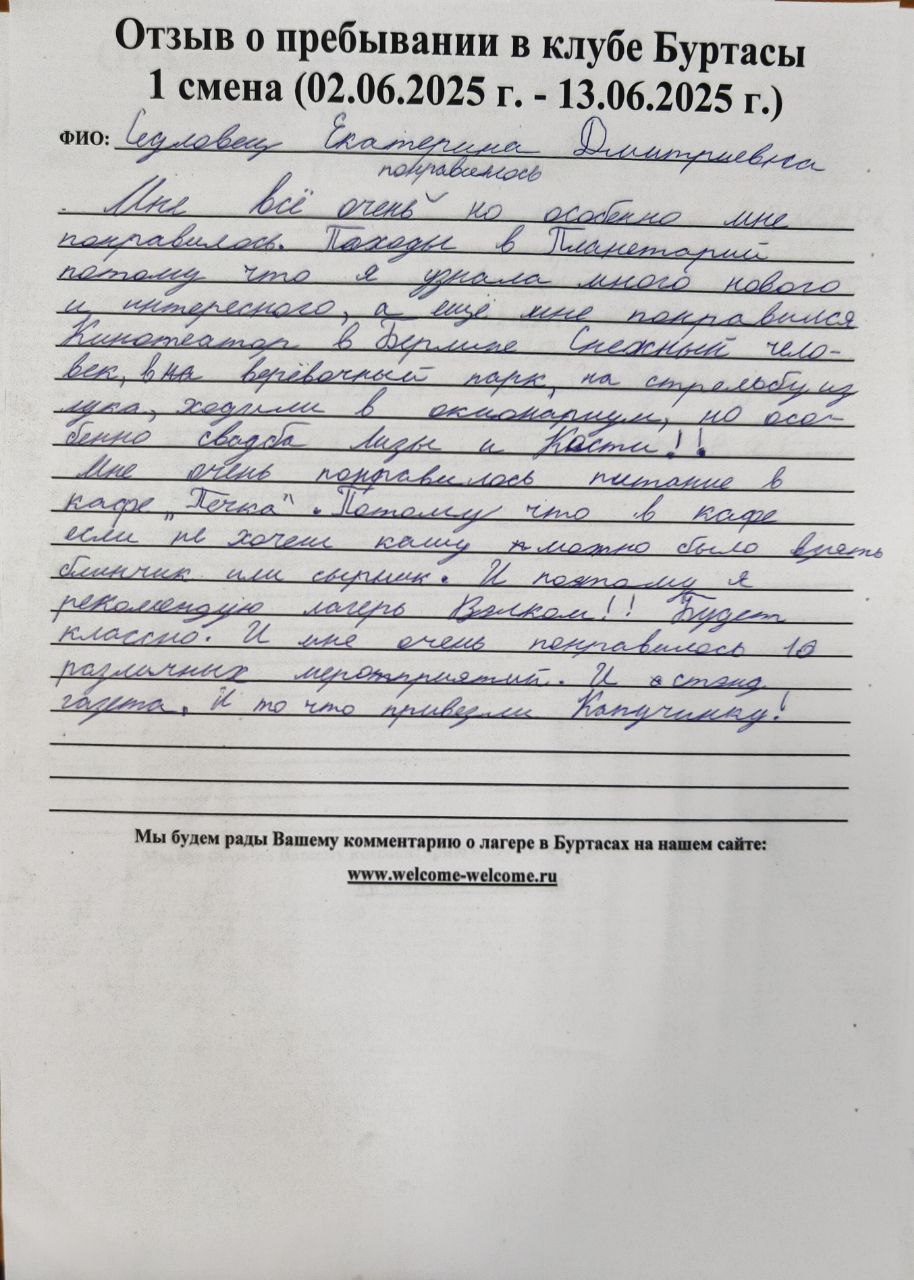 Отзыв о пребывании в клубе Буртасы
1 смена (02.06.2025 г. - 13.06.2025 г.)
ФИО: Седловец Екатерина Дмитриевна
понравилось
Мне всё очень но особенно мне
понравилось. Походы в Планетарий
потому что я узнала много нового
и интересного, а ещё мне понравился
Кинотеатор в Берлине Снежный чело-
век, в на верёвочный парк, на стрельбу из
лука, ходили в окионариум, но осо-
бенно свадба Лизы и Кости!!
Мне очень понравилось питание в
кафе „Печка". Потому что в кафе
если не хочеш кашу можно было взять
блинчик или сырник. И поэтому я
рекомендую лагерь Вэлком!! Будет
классно. И мне очень понравилось 10
различных мероприятий. И стэнд
газета. И то что привезли Капучинку!
Мы будем рады Вашему комментарию о лагере в Буртасах на нашем сайте:
www.welcome-welcome.ru